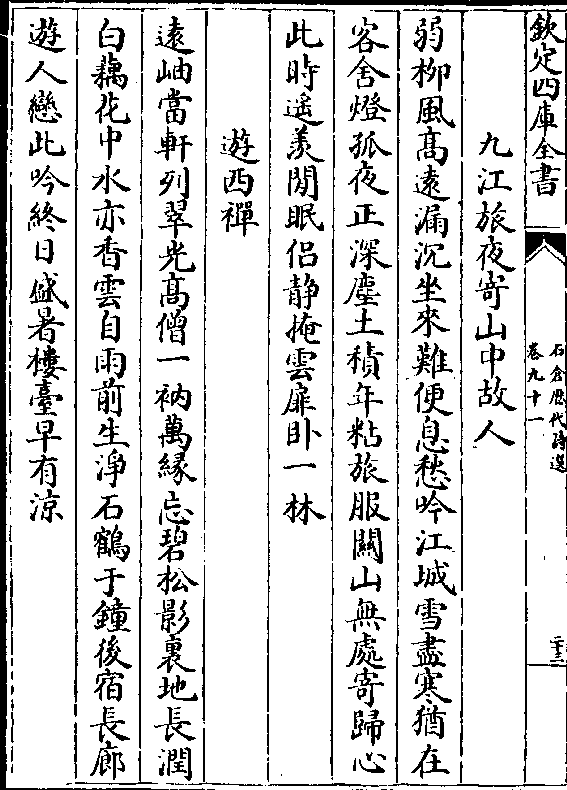 欽定四庫全書
石倉歷代詩選
卷九十一
二十三
九江旅夜寄山中故人
弱柳風髙遠漏沉坐來難便息愁吟江城雪盡寒猶在
客舍燈孤夜正深塵土積年粘旅服關山無處寄歸心
此時遙羨閒眠侶静掩雲扉卧一林
遊西禪
遠岫當軒列翠光髙僧一衲萬縁忘碧松影裏地長潤
白藕花中水亦香雲自雨前生淨石鶴于鐘後宿長廊
遊人戀此吟終日盛暑樓臺早有涼